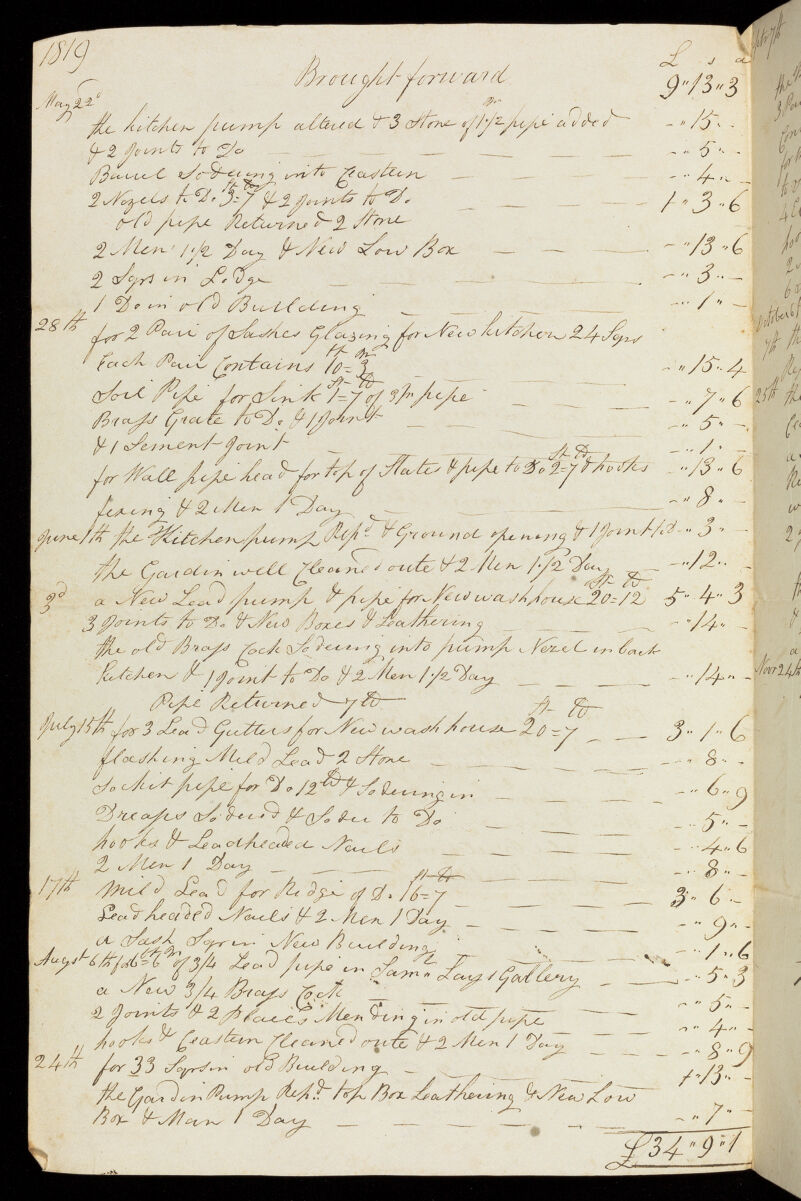 1819
£ s d
Brought forward 9 " 13 " 3
May 22d
the kitchen pump altered & 3 Stone of 1 1/2 In pipe added - " 15 " -
& 2 Joints to Do - " 5 " -
Sodering into Ceastern - " 4 " -
2 Nozels to Do 3 = 7 & 2 Joints to Do 1 " 3 " 6
old pipe Returned 2 Stone
2 Men 1 1/2 Day & New Low Box - " 13 " 6
2 Sqrs in Lodge - " 3 " -
1 Do in old Building - " 1 " -
28th for 2 Pair of Sashes Glazing for New kitchen 24 Sqrs
Each Pair Contains ft In 10 = 3 - " 15 " 4
Soil Pipe for Sink St lb 1 = 7 of 3 In pipe - " 7 " 6
Brass Grate to Do & 1 Joint - " 5 " -
& 1 Sement Joint - " 1 " -
for Wall pipe head for top of Slates & pipe to Do St lb 2 = 7 & hooks - " 13 " 6
fixing & 2 Men 1 Day - " 8 " -
June 1th the Kitchen pump Repd & Ground opening & 1 Joint - " 3 " -
the Gardin well Cleaned oute & 2 Men 1 1/2 Day - " 12 " -
3d a New Lead pump & pipe for New washhouse St lb 20 = 12 5 " 4 " 3
3 Joints to Do & New Boxes & Leathering - " 14 " -
the old Brass Cock Sodering into pump Nozel in back
Kitchen & 1 Joint to Do & 2 Men 1 1/2 Day - " 14 " -
Pipe Returned 7 lb
July 15th for 3 Lead Gutters for New wash house St lb 20 = 7 3 " 1 " 6
flashing Mild Lead 2 Stone - " 8 " -
Sockit pipe for Do 12 lb & Sodering in - " 6 " 9
Sodered & Soder to Do - " 5 " -
hooks & Leadheaded Nails - " 4 " 6
2 Men 1 Day - " 8 " -
17th Mild Lead for Ridge of Do St lb 16 = 7 3 " 6 " -
Leadheaded Nails & 2 Men 1 Day - " 9 " -
a Sash Sqr in New Building - " 1 " 6
Augst 6th for of 3/4 Lead pipe in Gallery - " 5 " 3
a New 3/4 Brass Cock - " 5 " -
2 Joints & 2 Places Mending in old pipe - " 4 " -
hooks & Ceastern Cleaned oute & 2 Men 1 Day - " 8 " 9
24th for 33 Sqrs in old Building + " 13 " -
the Gardin Pump Repd top Box Leathering & New Low
Box & Man 1 Day - " 7 " -
£ 34 " 9 " 1
7th
25th
Novr 24th